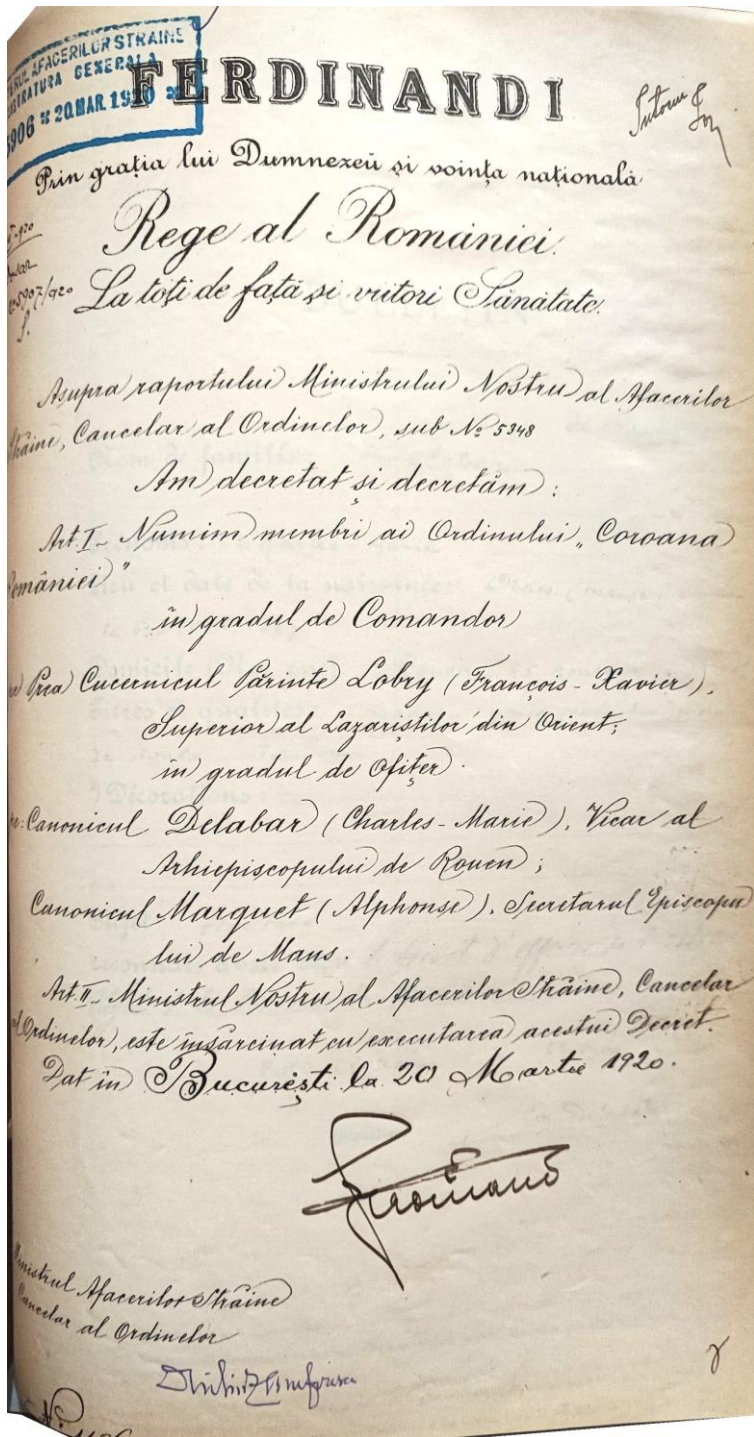 AFACERILOR STRAINE
GENERALA
5906 * 20 MAR. 1920 *
FERDINAND I
Prin grația lui Dumnezeu și voința națională
Rege al României.
5907/920
La toți de față și viitori Sănătate.
Asupra raportului Ministrului Nostru al Afacerilor
Străine, Cancelar al Ordinelor, sub № 5348
Am decretat și decretăm:
Art. I_ Numim membri ai Ordinului „Coroana
României"
în gradul de Comandor
Prea Cucernicul Părinte Lobry (François-Xavier),
Superior al Lazariștilor din Orient;
în gradul de Ofițer.
Canonicul Delabar (Charles-Marie), Vicar al
Arhiepiscopului de Rouen;
Canonicul Marquet (Alphonse), Secretarul Episcopu
lui de Mans.
Art. II_ Ministrul Nostru al Afacerilor Străine, Cancelar
al Ordinelor, este însărcinat cu executarea acestui Decret.
Dat în București la 20 Martie 1920.
Ferdinand
Ministrul Afacerilor Străine
Cancelar al Ordinelor